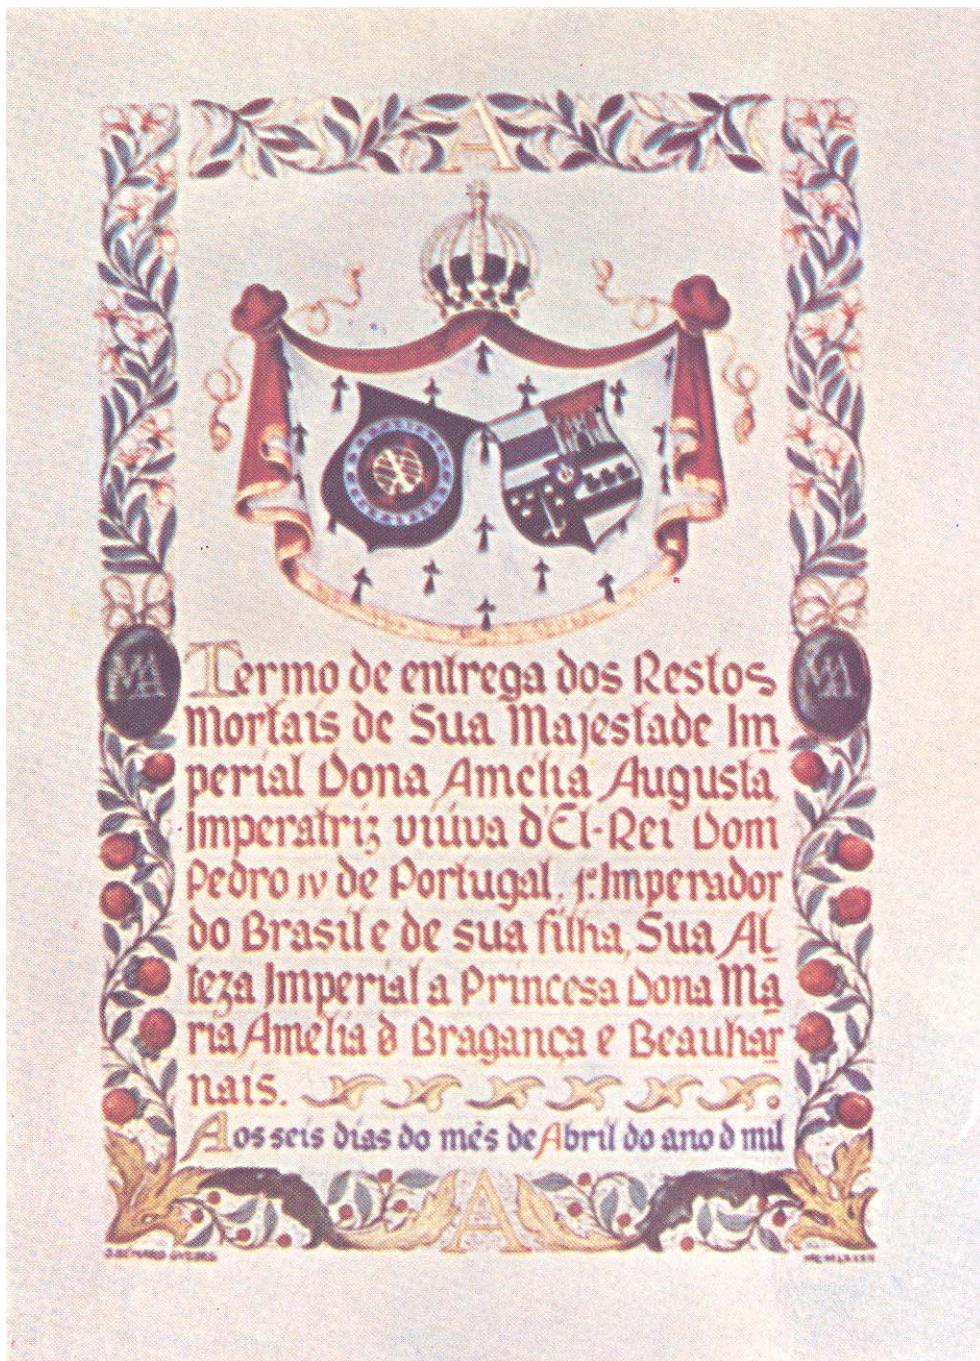 A
Termo de entrega dos Restos
Mortais de Sua Majestade Im
perial Dona Amelia Augusta,
Imperatriz viúva d'El-Rei Dom
Pedro IV de Portugal, 1º Imperador
do Brasil e de sua filha, Sua Al
teza Imperial a Princesa Dona Ma
ria Amelia d Bragança e Beauhar
nais.
Aos seis dias do mês de Abril do ano d mil
A